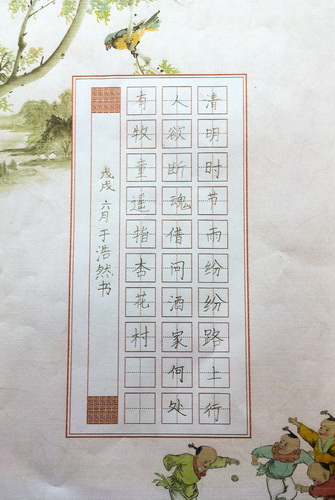 清明时节雨纷纷路上行
人欲断魂借问酒家何处
有牧童遥指杏花村
戊戌 六月于浩然书